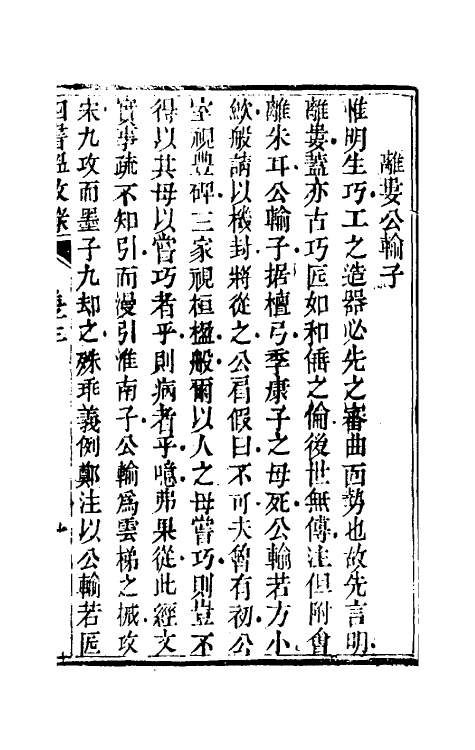 離婁公輸子
惟明生巧工之造器必先之審曲面勢也故先言明
離婁蓋亦古巧匠如和倕之倫後世無傳注但附會
離朱耳公輸子据檀弓季康子之母死公輸若方小
斂般請以機封將從之公肩假曰不可夫魯有初公
室視豐碑三家視桓楹般爾以人之母嘗巧則豈不
得以其母以嘗巧者乎則病者乎噫弗果從此經文
實事疏不知引而漫引淮南子公輸為雲梯之械攻
宋九攻而墨子九却之殊乖義例鄭注以公輸若匠
四書溫故錄 卷三